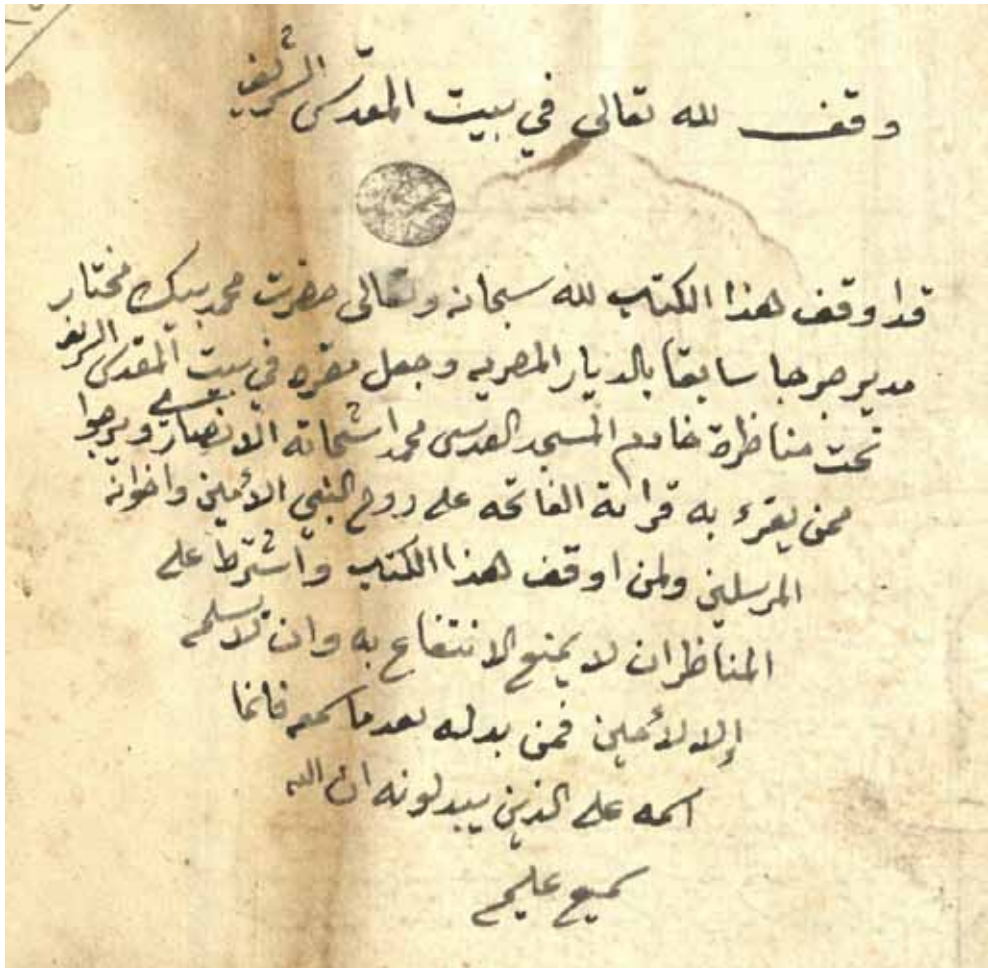 وقف لله تعالى في بيت المقدس الشريف
قد اوقف هذا الكتب لله سبحانه وتعالى حضرت محمد بيك مختار
مدير جرجا سابقا بالديار المصريه وجعل مقره في بيت المقدس الشريف
تحت مناظرة خادم المسجد القدسى محمد اشحاته الانصارى ويرجوا
ممن يقرء به قرائة الفاتحه على روح النبي الأمين واخوانه
المرسلين ولمن اوقف هذا الكتب واشترط على
المناظر ان لا يمنع الانتفاع به وان لا يسلمه
إلا لأمين فمن بدله بعدما سمعه فانما
اثمه على الذين يبدلونه ان الله
سميع عليم